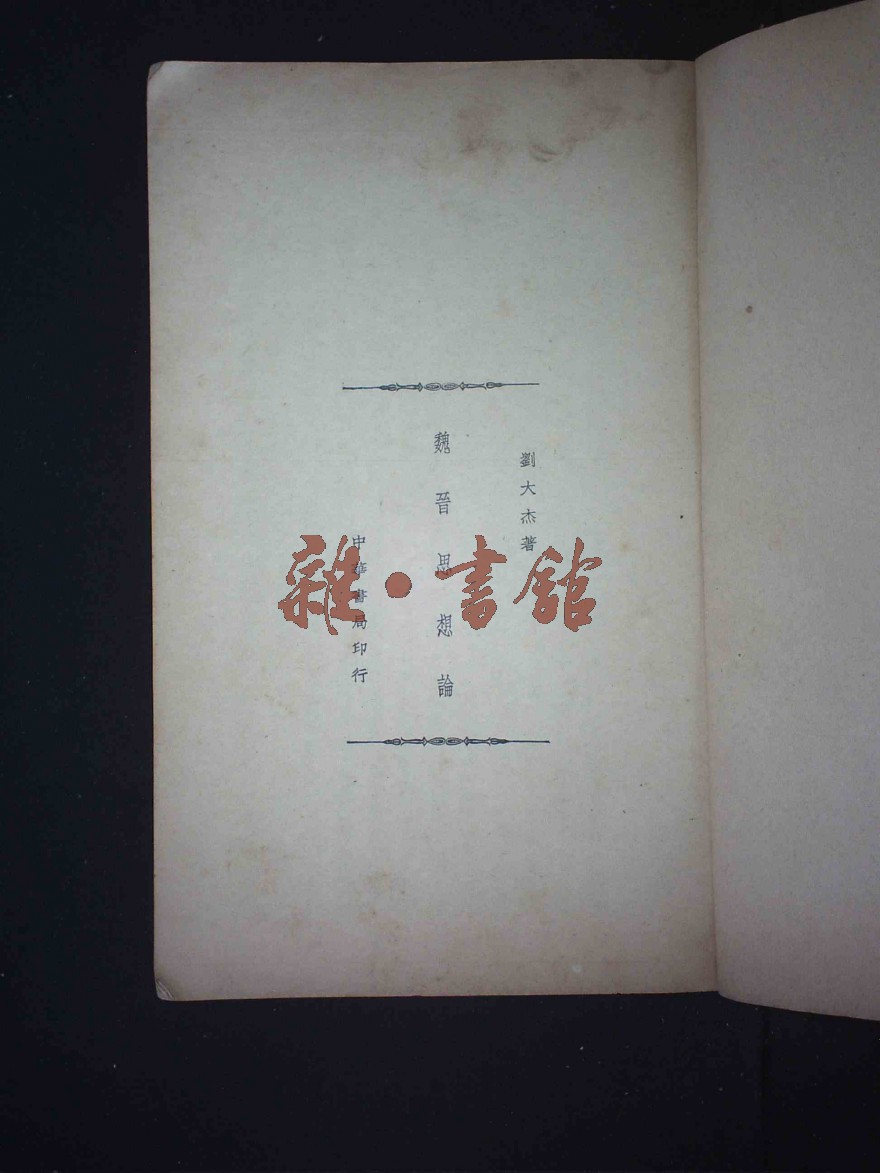 劉大杰著
魏晉思想論
中華書局印行
雜·書館